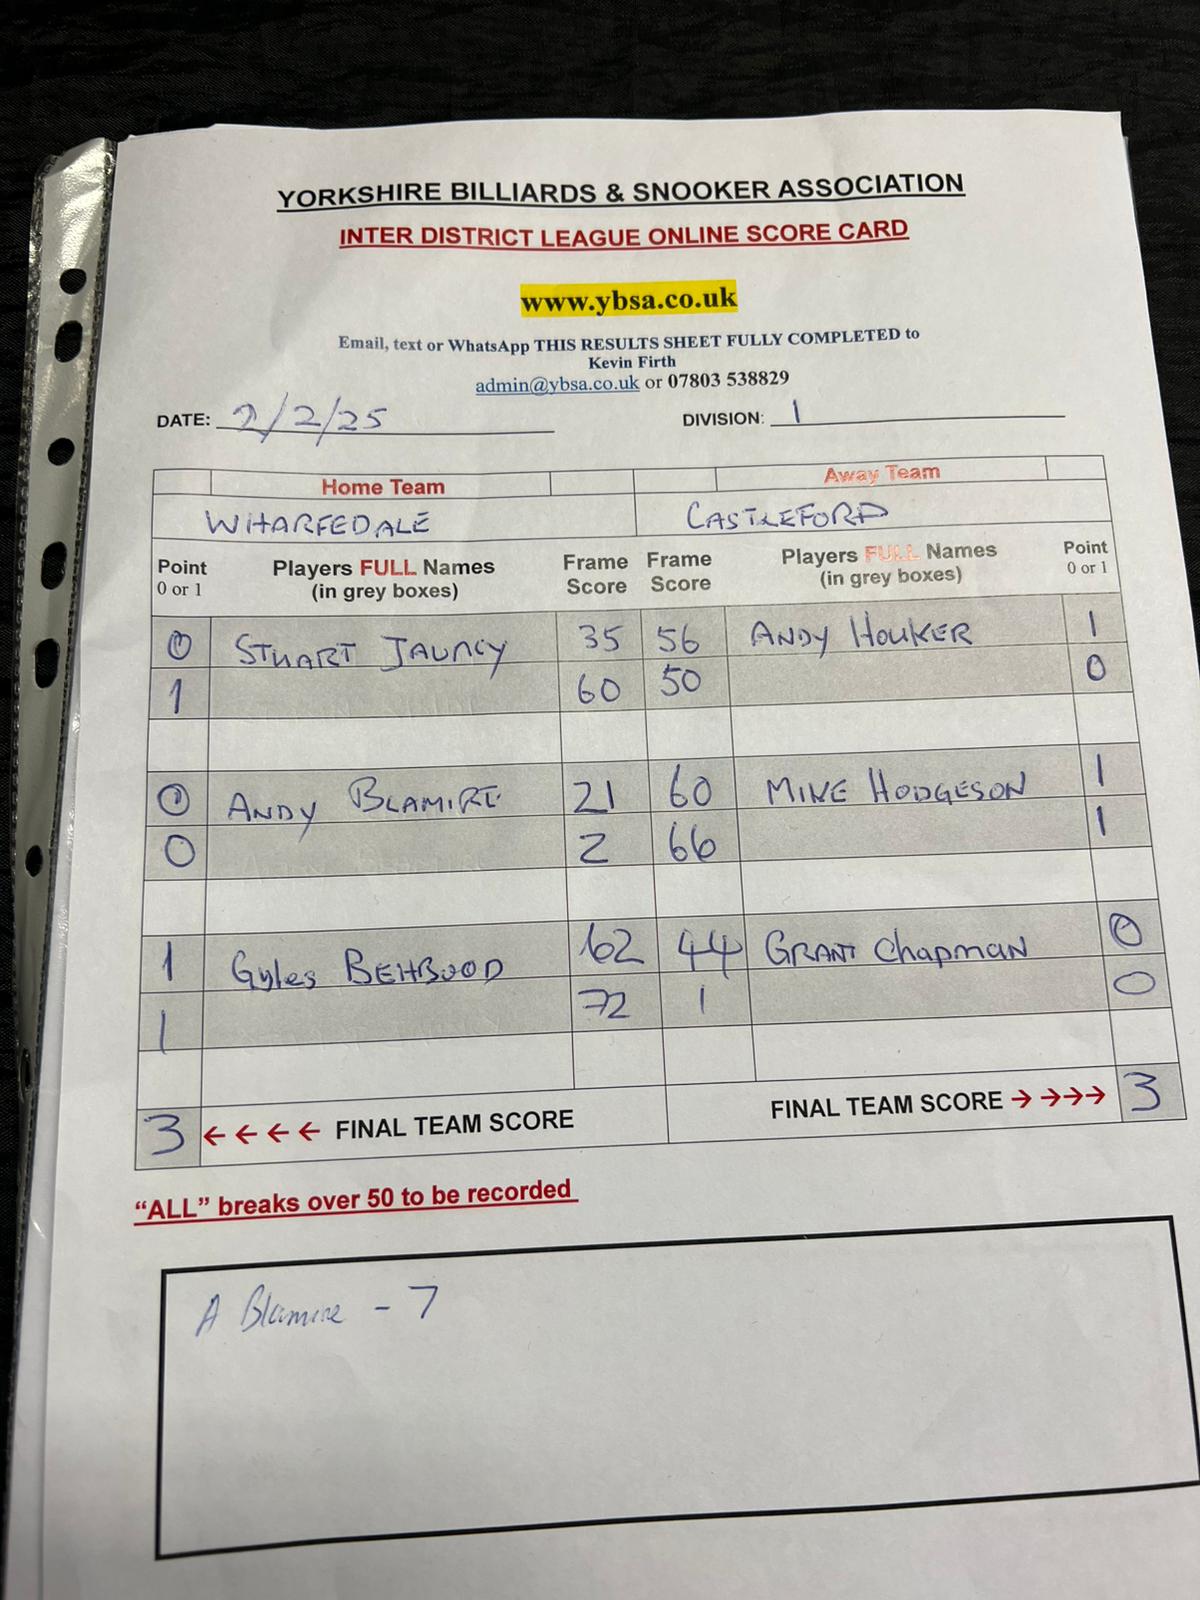 YORKSHIRE BILLIARDS & SNOOKER ASSOCIATION
INTER DISTRICT LEAGUE ONLINE SCORE CARD
www.ybsa.co.uk
Email, text or WhatsApp THIS RESULTS SHEET FULLY COMPLETED to
Kevin Firth
admin@ybsa.co.uk or 07803 538829
DATE: 2/2/25 DIVISION: 1
Home Team Away Team
WHARFEDALE CASTLEFORD
Point 0 or 1 Players FULL Names (in grey boxes) Frame Score Frame Score Players FULL Names (in grey boxes) Point 0 or 1
0 STUART JAUNCY 35 56 ANDY HOUKER 1
1 60 50 0
0 ANDY BLAMIRE 21 60 MIKE HODGESON 1
0 2 66 1
1 Gyles BEHBOOD 62 44 GRANT Chapman 0
1 72 1 0
3 ←←←← FINAL TEAM SCORE FINAL TEAM SCORE →→→→ 3
“ALL” breaks over 50 to be recorded
A Blamire - 7